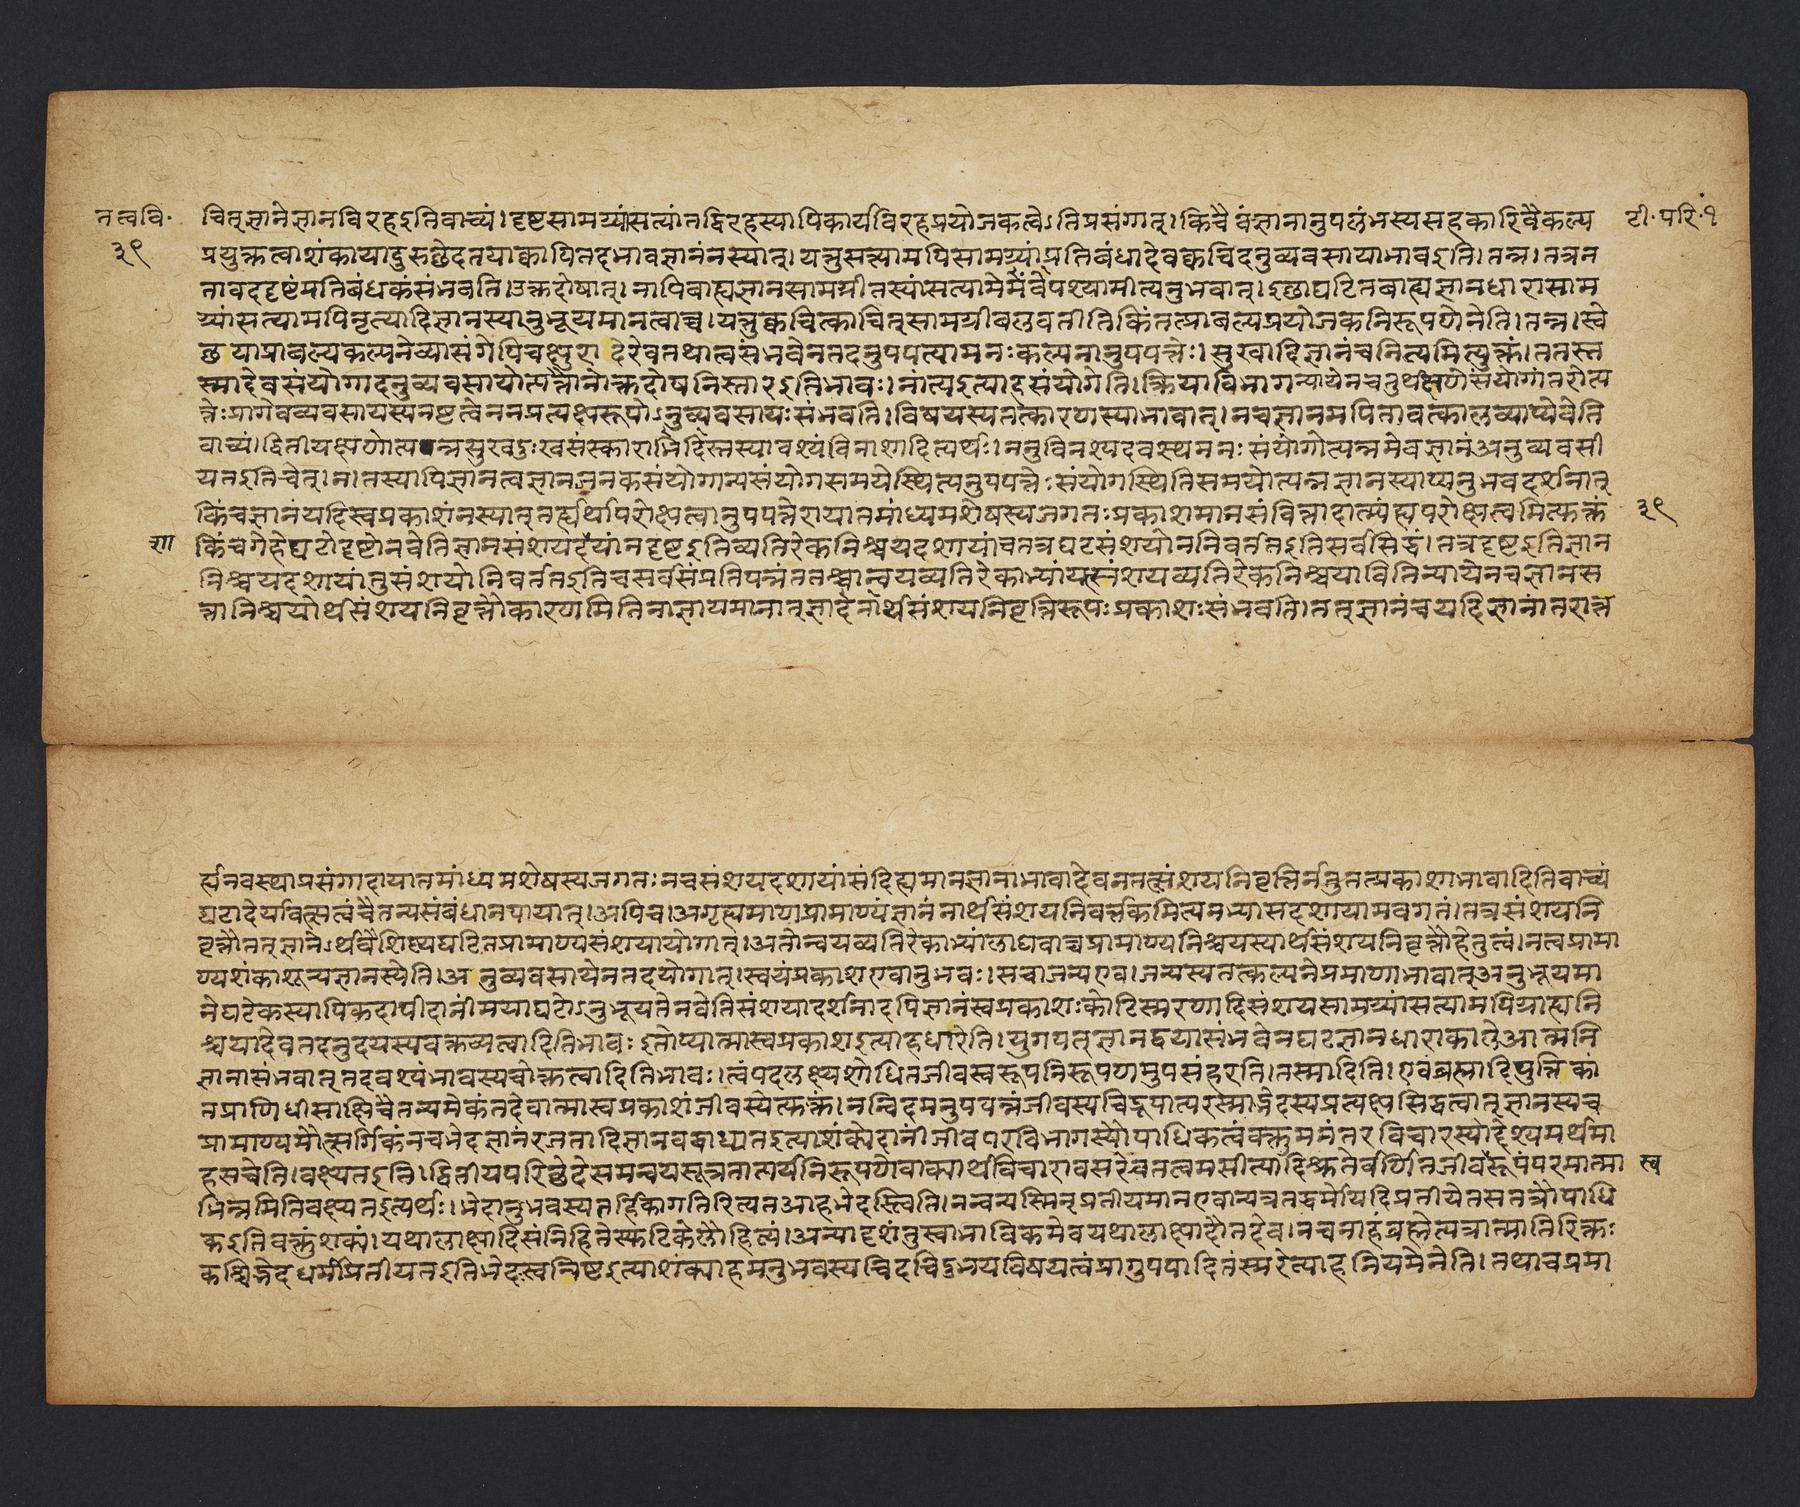 तत्ववि॰ चित्ज्ञानेज्ञानविरहइतिवाच्यं।दृष्टसामग्र्यांसत्यांतद्विरहस्यापिकार्यविरहप्रयोजकत्वेऽतिप्रसंगात्।किंचैवंज्ञानानुपलंभस्यसहकारिवैकल्य टी॰परि॰१
३९ प्रयुक्तत्वाशंकायादुरुछेदतयाक्वापितदभावज्ञानंनस्यात्।यत्तुसत्यामपिसामग्र्यांप्रतिबंधादेवक्वचिदनुव्यवसायाभावइति।तन्न।तत्रन
तावददृष्टंप्रतिबंधकंसंभवति।उक्तदोषात्।नापिबाह्यज्ञानसामग्रीतस्यांसत्यामेमेवंवेपश्यामीत्यनुभवात्।इछाघटितबाह्यज्ञानधारासाम
ग्र्यांसत्यामपिनृत्यादिज्ञानस्यानुभूयमानत्वाच्च।यत्तुक्वचित्काचित्सामग्रीबलवतीतिकिंतत्प्राबल्यप्रयोजकनिरूपणेनेति।तन्न।स्वे
छयाप्राबल्यकल्पनेव्यासंगेपिचक्षुरादेरेवतथात्वसंभवेनतदनुपपत्यामनःकल्पनानुपपत्तेः।सुखादिज्ञानंचनित्यमित्युक्तं।ततस्त
स्मादेवसंयोगादनुव्यवसायोत्पत्तौनोक्तदोषनिस्तारइतिभावः।नांत्यइत्याहसंयोगेति।क्रियाविभागन्यायेनचतुर्थक्षणेसंयोगांतरोत्प
त्तेःप्रागेवव्यवसायस्यनष्टत्वेननप्रत्यक्षरूपोऽनुव्यवसायःसंभवति।विषयस्यतत्कारणस्याभावात्।नचज्ञानमपितावत्कालव्याप्येवेति
वाच्यं।द्वितीयक्षणोत्पन्नसुखदुःखसंस्कारादिभिस्तस्यावश्यंविनाशादित्यर्थः।ननुविनश्यदवस्थमनःसंयोगोत्पन्नमेवज्ञानंअनुव्यवसी
यतइतिचेत्।न।तस्यापिज्ञानत्वज्ञानजनकसंयोगान्यसंयोगसमयेस्थित्यनुपपत्तेःसंयोगस्थितिसमयोत्पन्नज्ञानस्याप्यनुभवदर्शनात्
किंचज्ञानंयदिस्वप्रकाशंनस्यात्तर्ह्यर्थापरोक्षत्वानुपपत्तेरायातमांध्यमशेषस्यजगतःप्रकाशमानसंवित्तादात्म्यंह्यपरोक्षत्वमित्युक्तं ३९
शा किंचगेहेघटोदृष्टोनवेतिज्ञानसंशयदयांनदृष्टइतिव्यतिरेकनिश्चयदशायांचतत्रघटसंशयोननिवर्ततइतिसर्वसिद्धं।तत्रदृष्टइतिज्ञान
निश्चयदशायांतुसंशयोनिवर्ततइतिचसर्वसंप्रतिपन्नंततश्चान्वयव्यतिरेकाभ्यांयत्संशयव्यतिरेकनिश्चयावितिन्यायेनचज्ञानस
त्तानिश्चयोर्थसंशयनिवृत्तौकारणमितिनाज्ञायमानात्ज्ञादेर्नार्थसंशयनिवृत्तिरूपःप्रकाशःसंभवति।तत्ज्ञानंचयदिज्ञानांतरात्त
र्ह्यनवस्थाप्रसंगादायातमांध्यमशेषस्यजगतःनचसंशयदशायांसंदिह्यमानज्ञानाभावादेवनतत्संशयनिवृत्तिर्नतुतत्प्रकाशाभावादितिवाच्यं
घटादेर्यावत्सत्वंचैतन्यसंबंधानपायात्।अपिच।अगृह्यमाणप्रामाण्यंज्ञानंनार्थसंशयनिवर्त्तकमित्यनभ्यासदशायामवगतं।तत्रसंशयनि
वृत्तौतत्ज्ञानेऽर्थवैशिष्ट्यघटितप्रामाण्यसंशयायोगात्।अतोन्वयव्यतिरेकाभ्यांलाघवाच्चप्रामाण्यनिश्चयस्यार्थसंशयनिवृत्तौहेतुत्वं।नत्वप्रामा
ण्यशंकाशून्यज्ञानस्येति।अनुव्यवसायेनतदयोगात्।स्वयंप्रकाशएवानुभवः।सचाजन्यएव।जन्यस्यतत्कल्पनेप्रमाणाभावात्अनुभूयमा
नेघटेकस्यापिकदापीदानींमयाघटोऽनुभूयतेनवेतिसंशयादर्शनादपिज्ञानंस्वप्रकाशःकोटिस्मरणादिसंशयसामग्र्यांसत्यामपिग्राह्यनि
श्चयादेवतदनुदयस्यवक्तव्यत्वादितिभावःइतोप्यात्मास्वप्रकाशइत्याहधारेति।युगपत्ज्ञानद्वयासंभवेनघटज्ञानधाराकालेआत्मनि
ज्ञानासंभवात्तदवश्यंभावस्यचोक्तत्वादितिभावः।त्वंपदलक्ष्यशोधितजीवस्वरूपनिरूपणमुपसंहरति।तस्मादिति।एवंब्रह्मादिपुत्तिकां
तप्राणिधीसाक्षिचैतन्यमेकंतदेवात्मास्वप्रकाशंजीवस्येत्युक्तं।नन्विदमनुपपन्नंजीवस्यचिद्रूपात्परस्माद्भेदस्यप्रत्यक्षसिद्धत्वात्ज्ञानस्यच
प्रामाण्यमौत्सर्गिकंनचभेदज्ञानंरजतादिज्ञानवद्बाध्यतइत्याशंक्येदानींजीवपरविभागस्यौपाधिकत्वंवक्तुमनंतरविचारस्योद्देश्यमर्थमा
हसचेति।वक्ष्यतइति।द्वितीयपरिछेदेसमन्वयसूत्रतात्पर्यनिरूपणेवाक्यार्थविचारावसरेचतत्वमसीत्यादिश्रुतेर्वर्णितजीवरूपंपरमात्मा स्व
भिन्नमितिवक्ष्यतइत्यर्थः।भेदानुभवस्यतर्हिकागतिरित्यतआहभेदस्त्विति।नन्वन्यस्मिन्प्रतीयमानएवान्यत्रतद्धर्मोयदिप्रतीयेतसतत्रौपाधि
कइतिवक्तुंशक्यं।यथालाक्षादिसंनिहितेस्फटिकेलौहित्यं।अन्यादृशंतुस्वाभाविकमेवयथालाक्षादौतदेव।नचनाहंब्रह्मेत्यत्रात्मातिरिक्तः
कश्चिद्भेदधर्मीप्रतीयतइतिभेदस्त्वन्निष्टइत्याशंक्याहमनुभवस्यचिदचिदुभयविषयत्वंप्रागुपपादितंस्मरेत्याहनियमेनेति।तथाचप्रमा